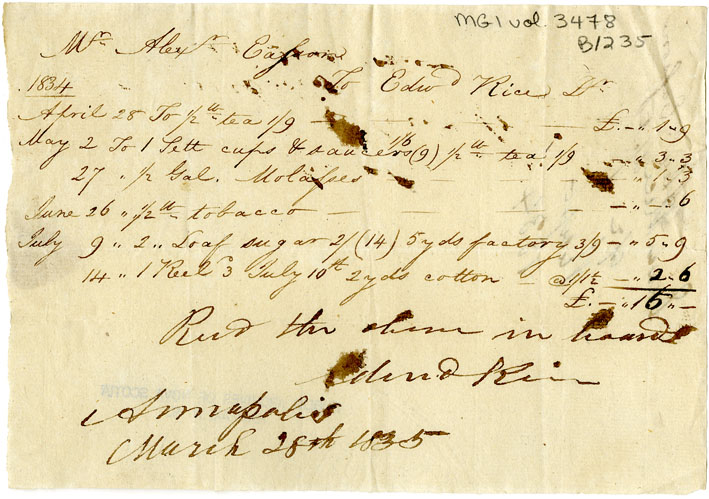 MG1 vol. 3478
B1235
Mr. Alexr. Easson
To Edwd Rice Dr.
1834
April 28 To 1/2 lb tea 1/9 — — — £. - " 1 " 9
May 2 To 1 Sett cups & saucers 1/6 (9) 1/2 lb tea 1/9 - " 3 " 3
27 " 1/2 Gal. Molasses — — — - " 1 " 3
June 26 " 1/2 lb tobacco — — — — - " - " 6
July 9 " 2 " Loaf sugar 2/ (14) 5 yds factory 3/9 - " 5 " 9
14 " 1 Reel 3 July 10th 2 yds cotton - @ 1/1½ - " 2 " 6
£. - " 15 " -
Recd the above in boards
Edwd Rice
Annapolis
March 28th 1835